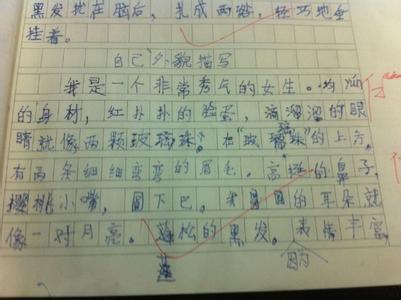 黑发扰在脑后，扎成两辫，轻巧地垂
挂着。
自己外貌描写
我是一个非常秀气的女生。均
的身材，红扑扑的脸蛋，滴溜溜的眼
睛就像两颗玻璃珠。在“玻璃珠”的上方，
有两条细细弯弯的眉毛。高挺的鼻子，
樱桃小嘴，圆下巴。的耳朵就
像一对月亮。蓬松的黑发。表情丰富
蓬
的